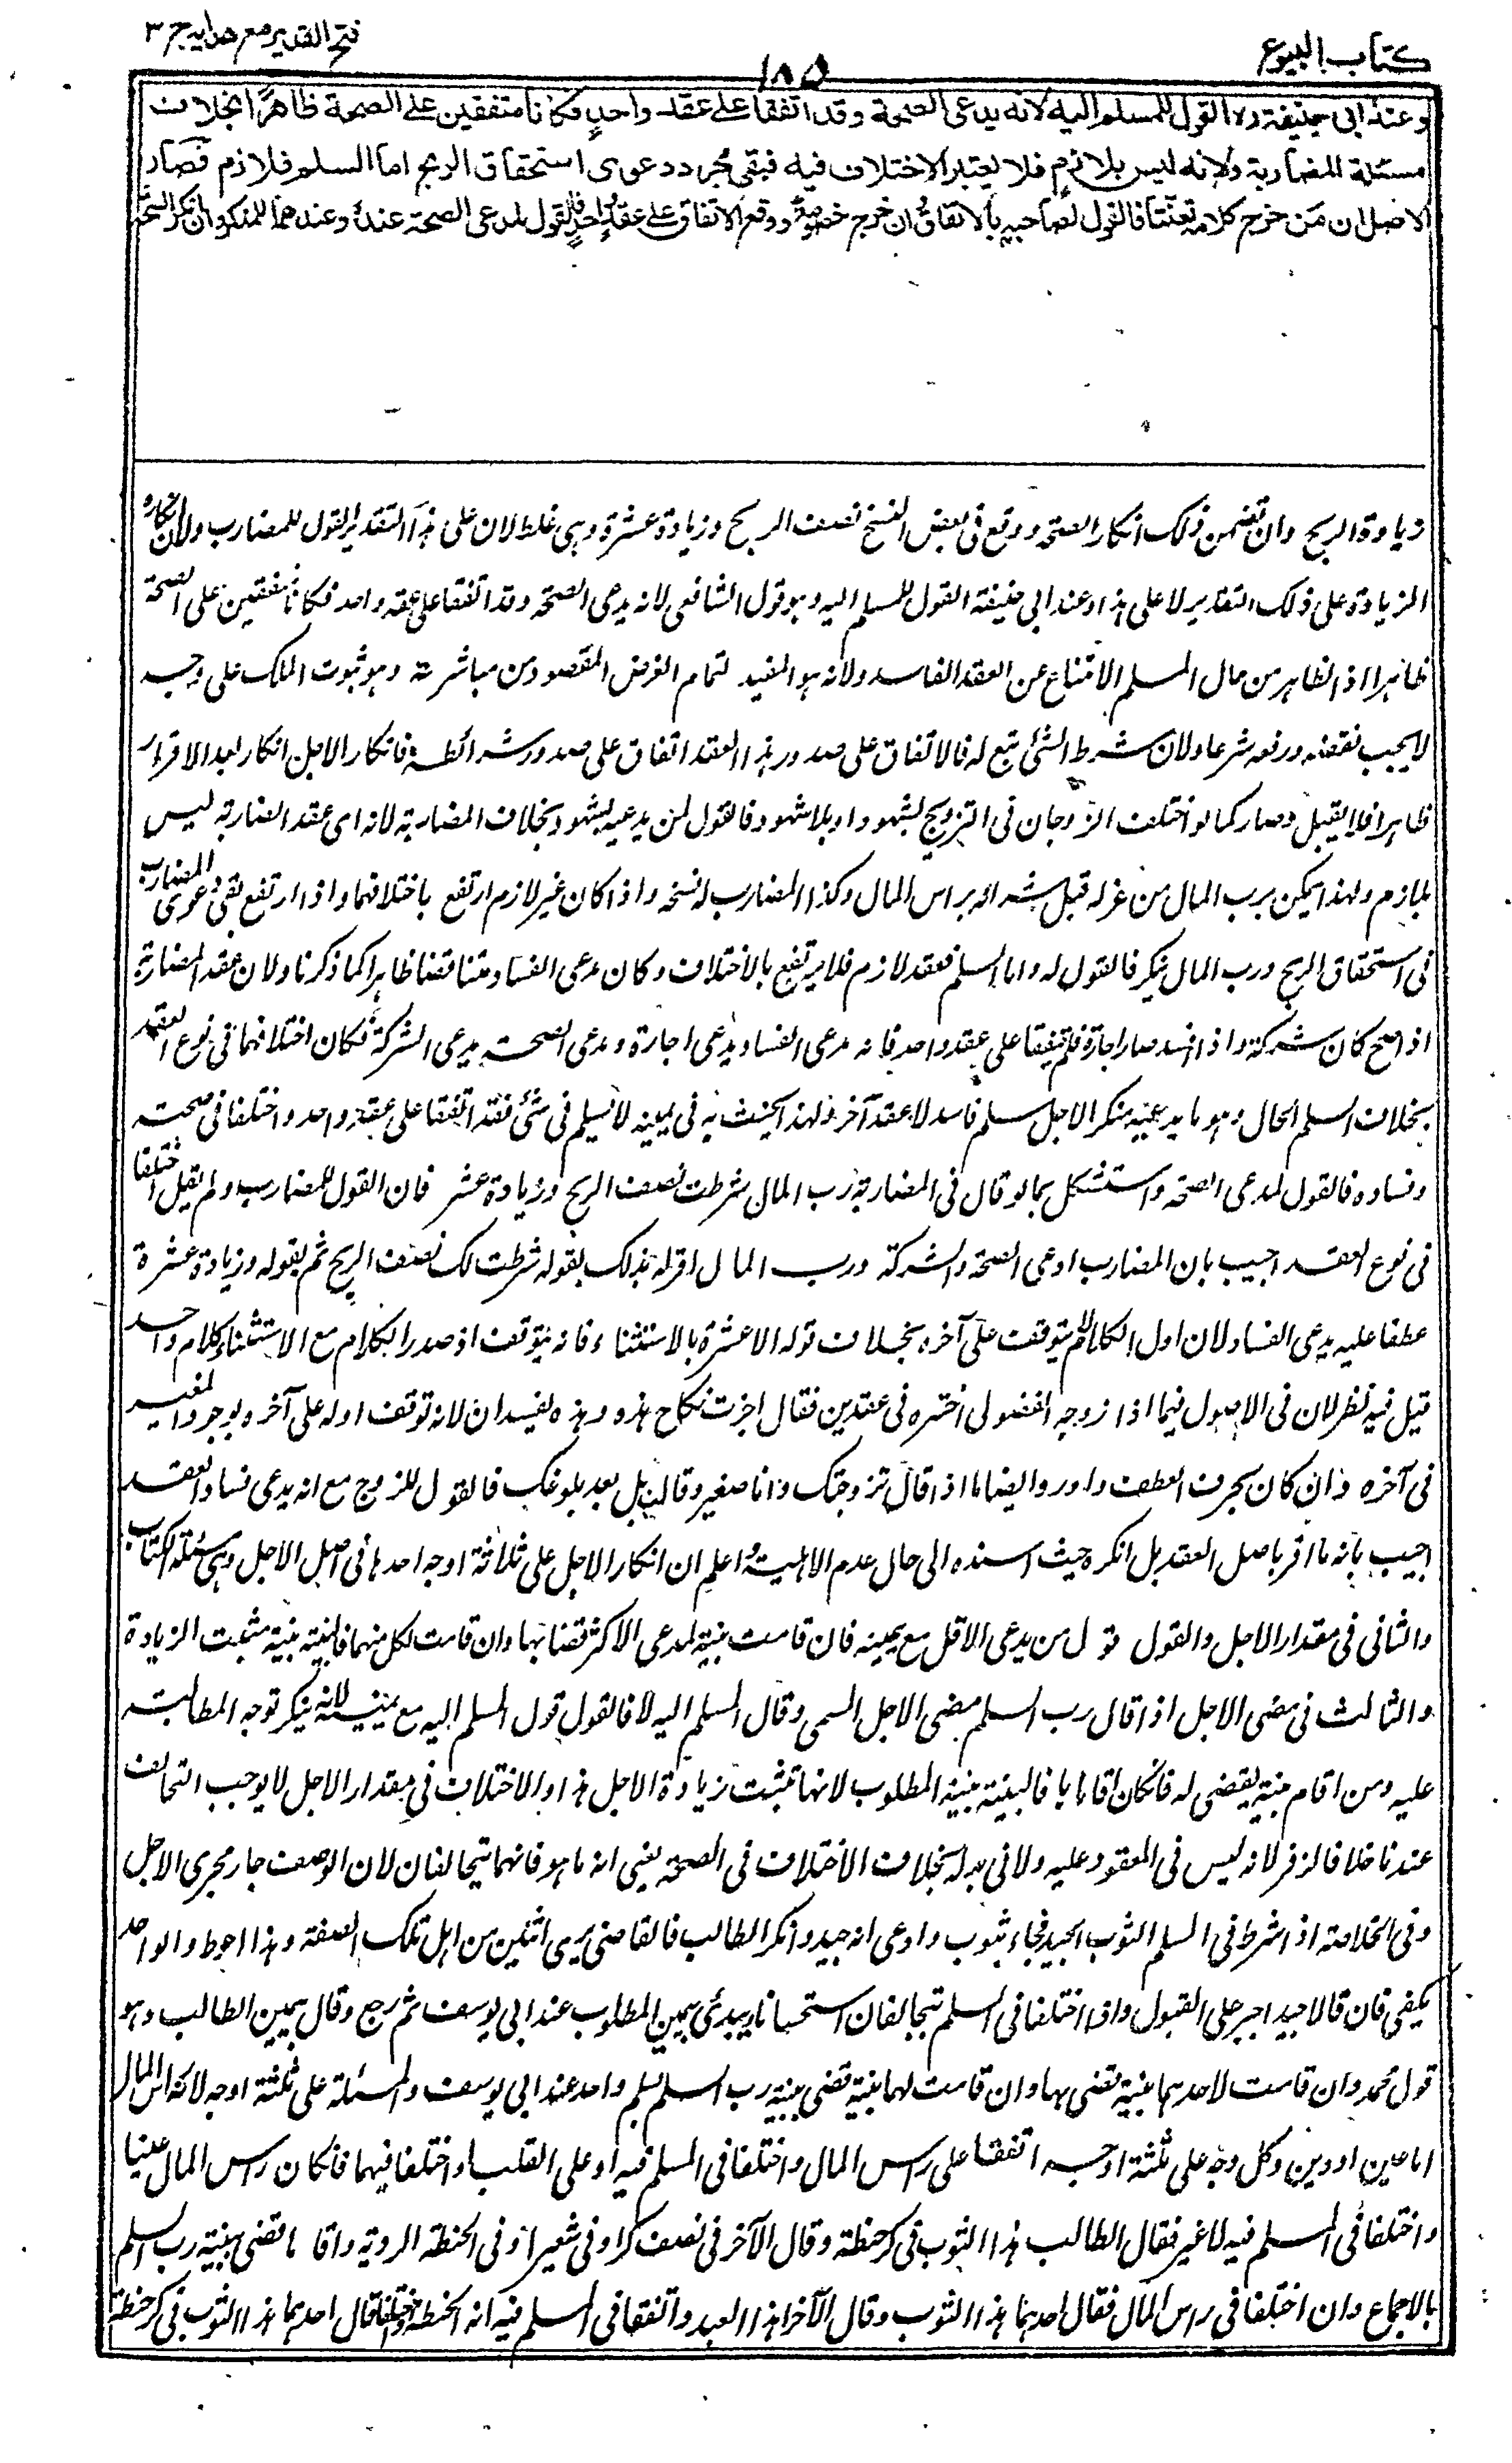 كتاب البيوع
١٨٥
فتح القدير مع هدايه ج ٣
وعند ابى حنيفة رح القول للمسلم اليه لانه يدعى الصحة وقد اتفقا على عقد واحد فكانا متفقين على الصحة ظاهرًا بخلاف
مسئلة المضاربة ولانه ليس بلازم فلا يعتبر الاختلاف فيه فبقى مجرد دعوى استحقاق الربح اما السلم فلازم فصار
الاصل ان من خرج كلامه تعنتا فالقول لصاحبه بالاتفاق وان خرج خصومة ووقع الاتفاق على عقد واحد فالقول لمدعى الصحة عنده وعندهما للمنكر وان انكر الصحة
زيادة الربح وان تضمن ذلك انكار الصحة ووقع فى بعض النسخ نصف الربح وزيادة عشرة وهى غلط لان على هذا التقدير القول للمضارب ولان انكاره
الزيادة على ذلك التقدير لا على هذا وعند ابى حنيفة القول للمسلم اليه وهو قول الشافعى لانه يدعى الصحة وقد اتفقا على عقد واحد فكانا متفقين على الصحة
ظاهرا اذ الظاهر من حال المسلم الامتناع عن العقد الفاسد ولانه هو المفيد لتمام الغرض المقصود من مباشرته وهو ثبوت الملك على وجه
لا يجب نقضه ورفعه شرعا ولان شرط الشئ تبع له فالاتفاق على صدور هذا العقد اتفاق على صدور شرائطه فانكار الاجل انكار بعد الاقرار
ظاهرا فلا يقبل وصار كما لو اختلف الزوجان فى التزويج بشهود او بلا شهود فالقول لمن يدعيه بشهود بخلاف المضاربة لانه اى عقد المضاربة ليس
بلازم ولهذا يمكن برب المال من عزله قبل شرائه براس المال وكذا المضارب له فسخه واذا كان غير لازم ارتفع باختلافهما واذا ارتفع بقى دعوى المضارب
فى استحقاق الربح ورب المال ينكر فالقول له واما السلم فعقد لازم فلا يرتفع بالاختلاف وكان مدعى الفساد متناقضا ظاهرا كما ذكرنا ولان عقد المضاربة
اذا صح كان شركة واذا فسد صار اجارة فلم يتفقا على عقد واحد فانه مدعى الفساد يدعى اجارة ومدعى الصحة يدعى الشركة فكان اختلافهما فى نوع العقد
بخلاف السلم الحال وهو ما يدعيه منكر الاجل سلم فاسد لا عقد آخر ولهذا يحنث به فى يمينه لا يسلم فى شئ فقد اتفقا على عقد واحد واختلفا فى صحته
وفساده فالقول لمدعى الصحة واستشكل بما لو قال فى المضاربة رب المال شرطت نصف الربح وزيادة عشر فان القول للمضارب ولم يقل اختلفا
فى نوع العقد اجيب بان المضارب ادعى الصحة والشركة ورب المال اقر له بذلك بقوله شرطت لك نصف الربح ثم بقوله وزيادة عشرة
عطفا عليه يدعى الفساد لان اول الكلام لم يتوقف على آخره بخلاف قوله الا عشرة بالاستثناء فانه يتوقف اذ صدر الكلام مع الاستثناء كلام واحد
قيل فيه نظر لان فى الاصول فيما اذا زوجه الفضولى اختين فى عقدين فقال اجزت نكاح هذه وهذه يفسدان لانه توقف اوله على آخره لوجود المغير
فى آخره وان كان بحرف العطف واورد ايضا ما اذا قال تزوجتك وانا صغير وقالت بل بعد بلوغك فالقول للزوج مع انه يدعى فساد العقد
اجيب بانه ما اقر باصل العقد بل انكره حيث اسنده الى حال عدم الاهلية واعلم ان انكار الاجل على ثلاثة اوجه احدها فى اصل الاجل وهى مسئلة الكتاب
والثانى فى مقدار الاجل والقول قول من يدعى الاقل مع يمينه فان قامت بينة لمدعى الاكثر قضى بها وان قامت لكل منهما فالبينة بينة مثبت الزيادة
والثالث فى مضى الاجل اذا قال رب السلم مضى الاجل المسمى وقال المسلم اليه لا فالقول قول المسلم اليه مع يمينه لانه ينكر توجه المطالبة
عليه ومن اقام بينة يقضى له فان كان اقاماها فالبينة بينة المطلوب لانها تثبت زيادة الاجل هذا والاختلاف فى مقدار الاجل لا يوجب التحالف
عندنا خلافا لزفر لانه ليس فى المعقود عليه ولا فى بدله بخلاف الاختلاف فى الصحة يعنى انه ما هو فانهما يتحالفان لان الوصف جار مجرى الاجل
وفى الخلاصة اذا شرط فى السلم الثوب الجيد فجاء بثوب وادعى انه جيد وانكر الطالب فالقاضى يرى اثنين من اهل تلك الصنعة وهذا احوط والواحد
يكفى فان قالا جيد اجبر على القبول واذا اختلفا فى السلم تحالفان استحسانا ويبدئ بيمين المطلوب عند ابى يوسف ثم رجع وقال بيمين الطالب وهو
قول محمد وان قامت لاحدهما بينة تقضى بها وان قامت لهما بينة تقضى ببينة رب السلم بسلم واحد عند ابى يوسف والمسئلة على ثلثة اوجه لان راس المال
اما عين او دين وكل وجه على ثلثة اوجه اتفقا على راس المال واختلفا فى المسلم فيه او على القلب او اختلفا فيهما فان كان راس المال عينا
واختلفا فى المسلم فيه لا غير فقال الطالب هذا الثوب فى كر حنطة وقال الآخر فى نصف كر او فى شعير او فى الحنطة الردية واقاما تقضى ببينة رب السلم
بالاجماع وان اختلفا فى راس المال فقال احدهما هذا الثوب وقال الآخر هذا العبد واتفقا فى المسلم فيه انه الحنطة او اختلفا قال احدهما هذا الثوب فى كر حنطة